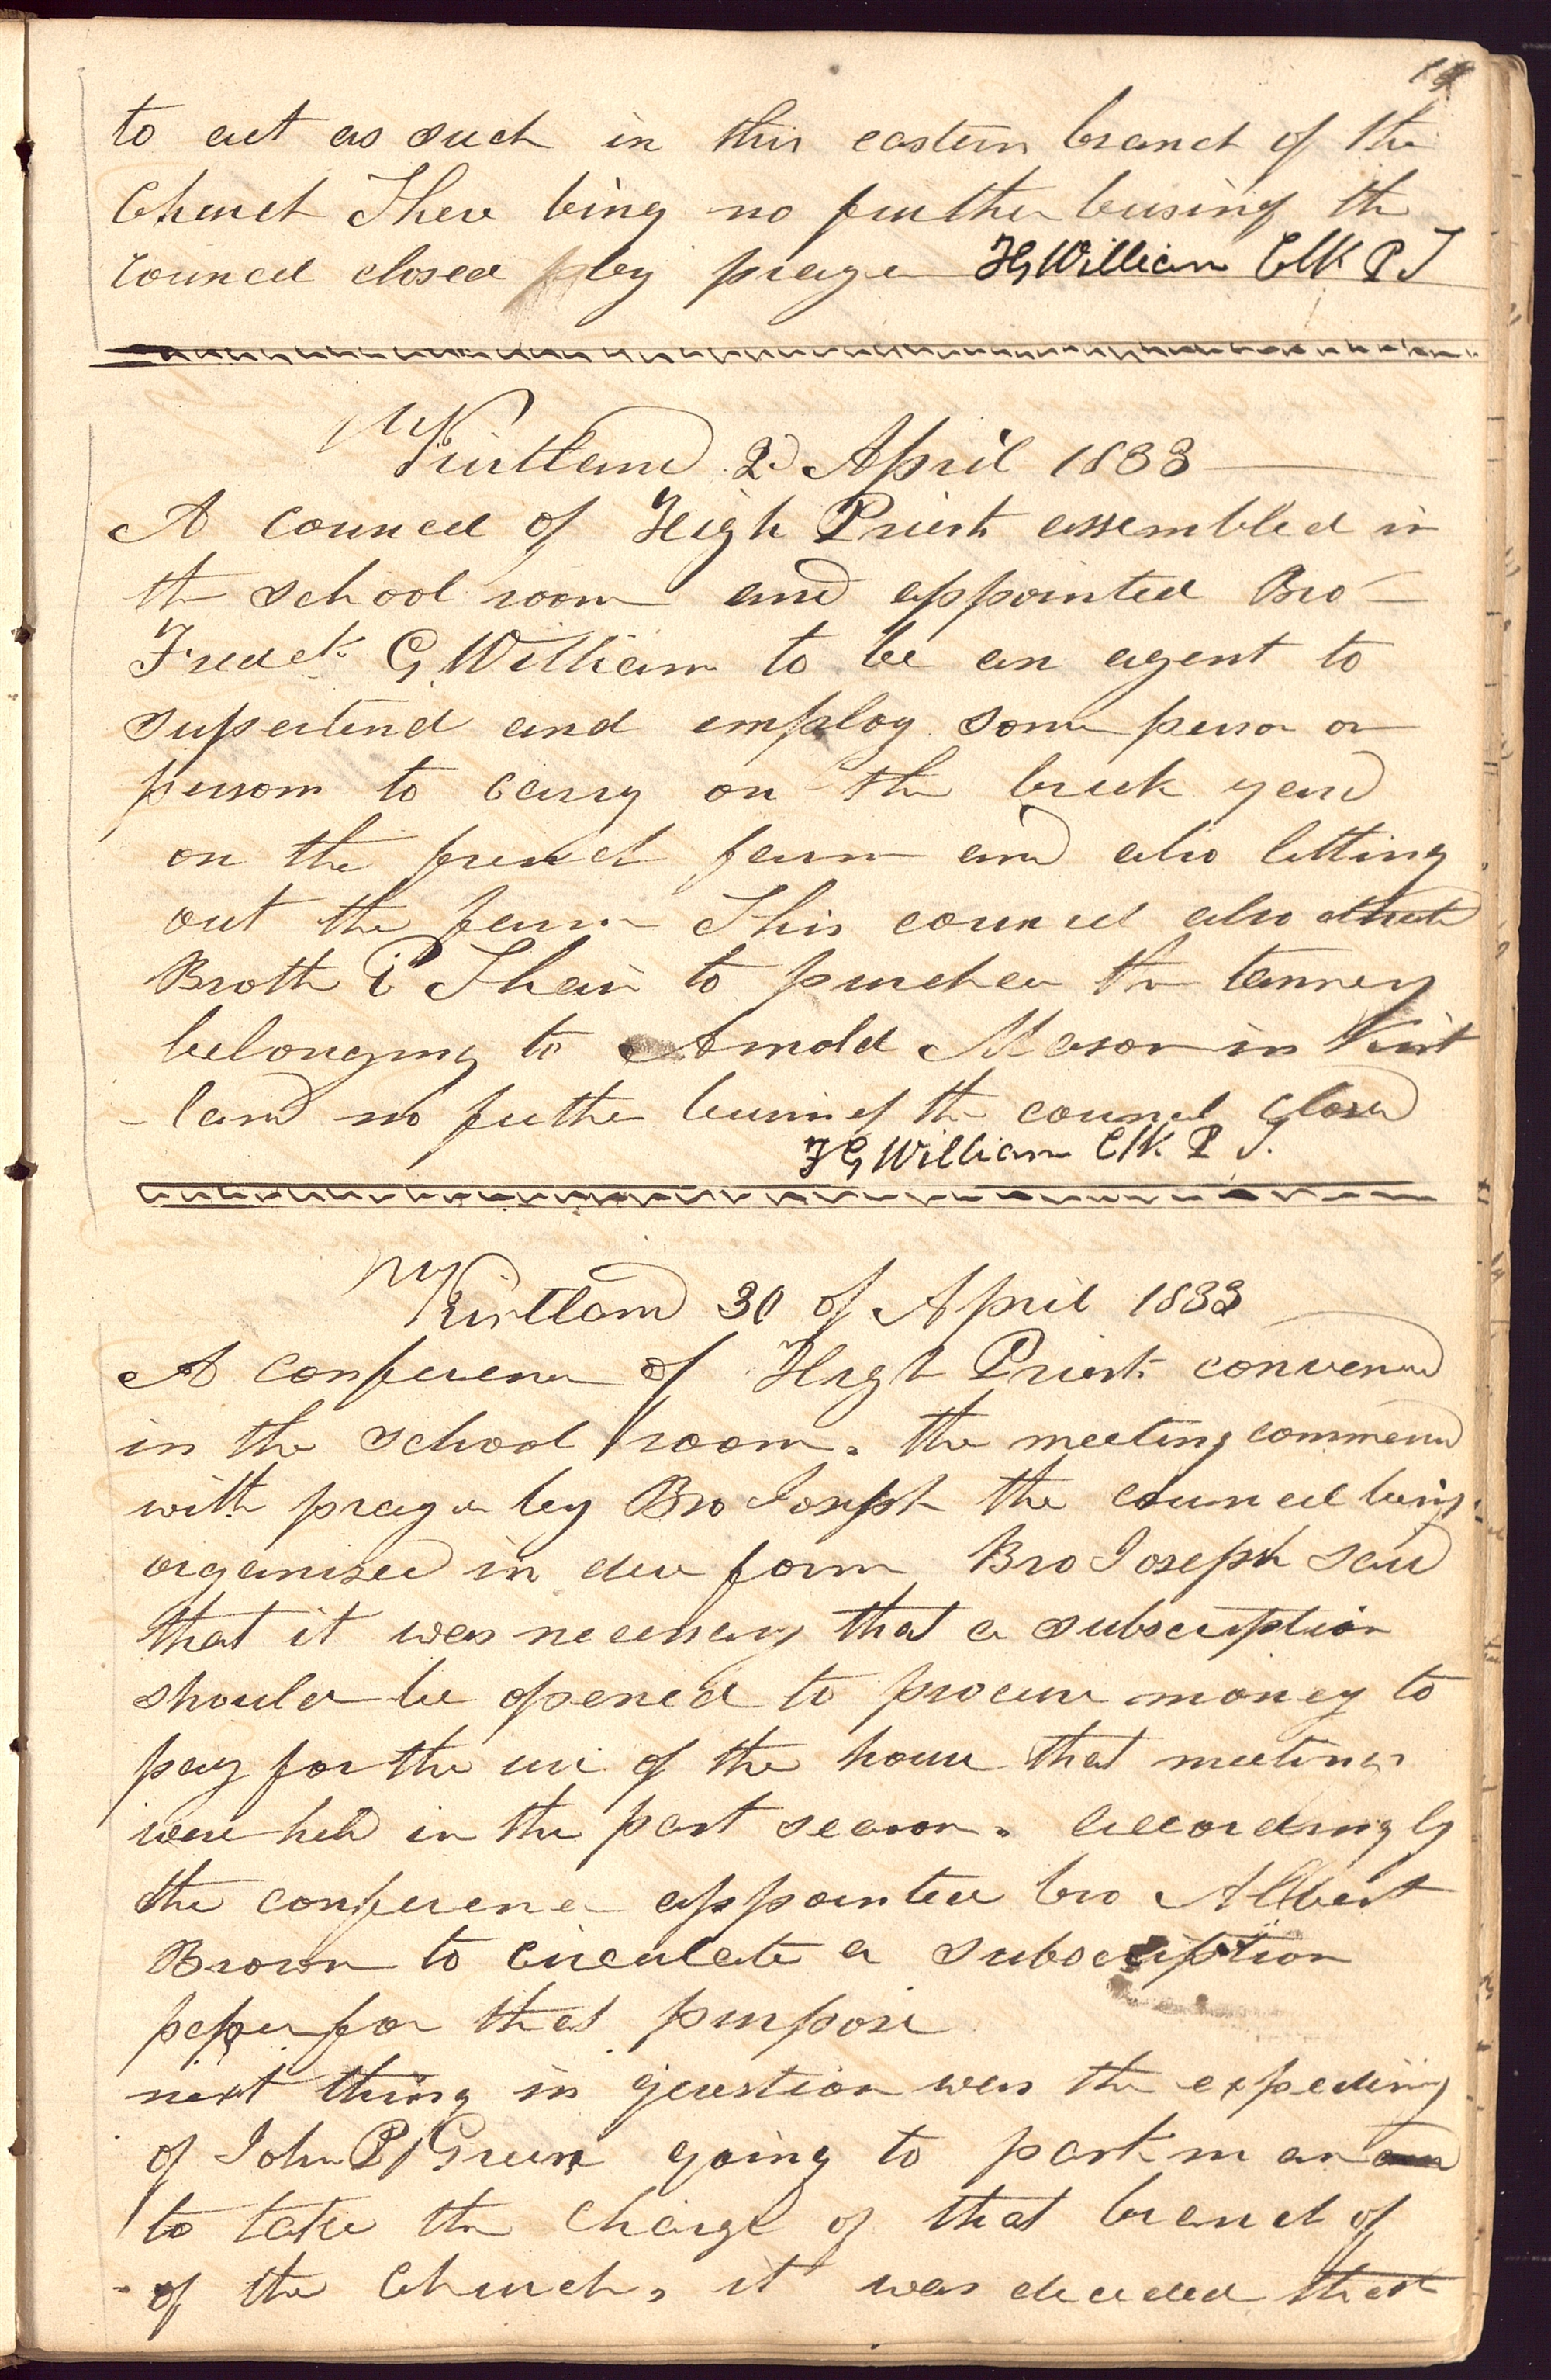 to act as such in this eastern branch of the
Church There being no further businefs the
council closed by prayer FG William Clk P T
Kirtland 2d April 1833
A council of High Priest assembled in
the school room and appointed Bro
Fredck G William to be an agent to
supertend and employ some person or
persons to carry on the brick yard
on the french farm and also letting
out the farm This council also
Brothr Thair to purchase the tannery
belonging to Arnold Mason in Kirt
-land no futher businefs the council closed
FG William Clk P T.
Kirtland 30 of April 1833
A conference of High Priest convened
in the school room. the meeting commencd
with prayer by Bro Joseph the council being
organized in due form Bro Joseph said
that it was necessary that a subscription
should be opened to procure money to
pay for the use of the house that meetings
were held in the past season. accordingly
the conference appointed bro Albert
Brown to circulate a subscription
paper for that purpose
next thing in question was the expediency
of John P Green going to parkman
to take the charge of that branch of
of the Church, it was decided that